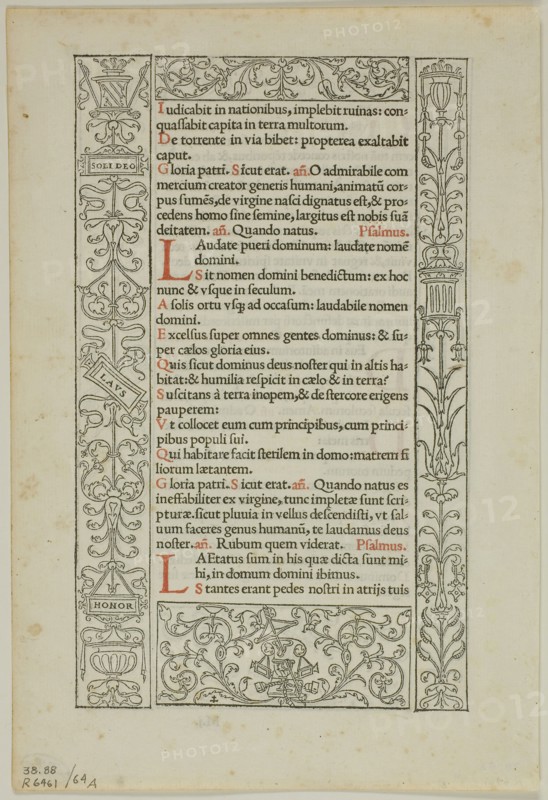 SOLI DEO
LAVS
HONOR
Iudicabit in nationibus, implebit ruinas: con-
quaſſabit capita in terra multorum.
De torrente in via bibet: propterea exaltabit
caput.
Gloria patri. Sicut erat. añ. O admirabile com
mercium creator generis humani, animatũ cor-
pus ſumẽs, de virgine naſci dignatus eſt, & pro-
cedens homo ſine ſemine, largitus eſt nobis ſuã
deitatem. añ. Quando natus. Pſalmus.
LAudate pueri dominum: laudate nomẽ
domini.
Sit nomen domini benedictum: ex hoc
nunc & vſque in ſeculum.
A ſolis ortu vſq; ad occaſum: laudabile nomen
domini.
Excelſus ſuper omnes gentes dominus: & ſu-
per cælos gloria eius.
Quis ſicut dominus deus noſter qui in altis ha-
bitat: & humilia reſpicit in cælo & in terra?
Suſcitans à terra inopem, & de ſtercore erigens
pauperem:
Vt collocet eum cum principibus, cum princi-
pibus populi ſui.
Qui habitare facit ſterilem in domo: matrem fi
liorum lætantem.
Gloria patri. Sicut erat. añ. Quando natus es
ineffabiliter ex virgine, tunc impletæ ſunt ſcri-
pturæ. ſicut pluuia in vellus deſcendiſti, vt ſal-
uum faceres genus humanũ, te laudamus deus
noſter. añ. Rubum quem viderat. Pſalmus.
LAEtatus ſum in his quæ dicta ſunt mi-
hi, in domum domini ibimus.
Stantes erant pedes noſtri in atrijs tuis
38.88
R6461 /64A
PHOTO12
PHOTO12
PHOTO12
PHOTO12